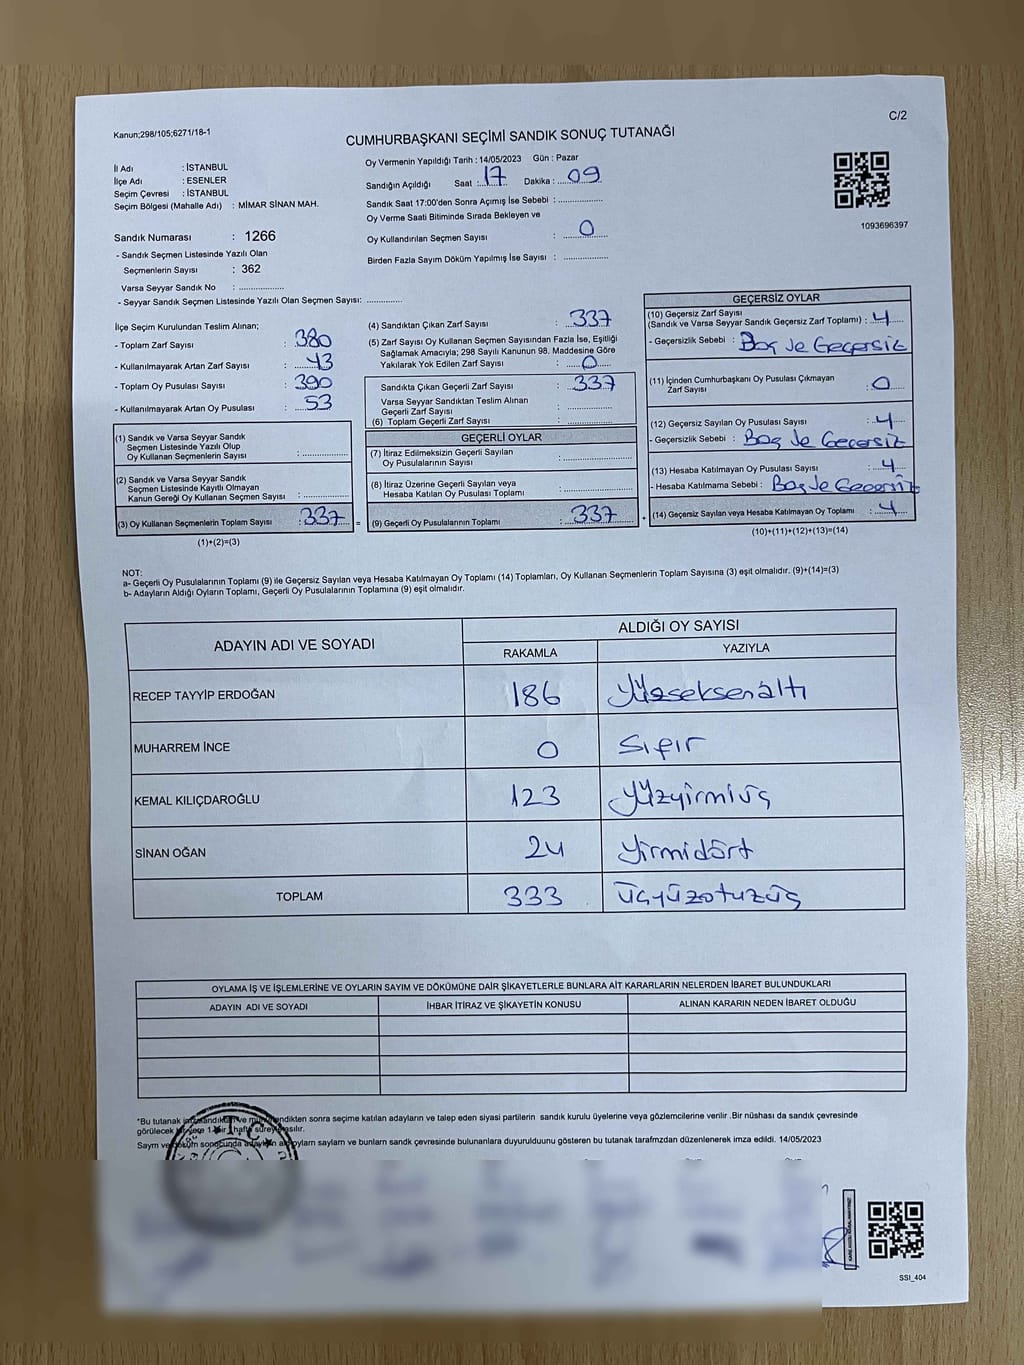 Kanun;298/105;6271/18-1
C/2
CUMHURBAŞKANI SEÇİMİ SANDIK SONUÇ TUTANAĞI
İl Adı : İSTANBUL
İlçe Adı : ESENLER
Seçim Çevresi : İSTANBUL
Seçim Bölgesi (Mahalle Adı) : MİMAR SİNAN MAH.
Sandık Numarası : 1266
- Sandık Seçmen Listesinde Yazılı Olan
Seçmenlerin Sayısı : 362
Varsa Seyyar Sandık No : ................
- Seyyar Sandık Seçmen Listesinde Yazılı Olan Seçmen Sayısı: ............
Oy Vermenin Yapıldığı Tarih : 14/05/2023 Gün : Pazar
Sandığın Açıldığı Saat : 17 Dakika : 09
Sandık Saat 17:00'den Sonra Açımış İse Sebebi : ................
Oy Verme Saati Bitiminde Sırada Bekleyen ve
Oy Kullandırılan Seçmen Sayısı : 0
Birden Fazla Sayım Döküm Yapılmış İse Sayısı : ................
1093696397
İlçe Seçim Kurulundan Teslim Alınan;
- Toplam Zarf Sayısı : 380
- Kullanılmayarak Artan Zarf Sayısı : 43
- Toplam Oy Pusulası Sayısı : 390
- Kullanılmayarak Artan Oy Pusulası : 53
(1) Sandık ve Varsa Seyyar Sandık
Seçmen Listesinde Yazılı Olup
Oy Kullanan Seçmenlerin Sayısı : ................
(2) Sandık ve Varsa Seyyar Sandık
Seçmen Listesinde Kayıtlı Olmayan
Kanun Gereği Oy Kullanan Seçmen Sayısı : ................
(3) Oy Kullanan Seçmenlerin Toplam Sayısı : 337 =
(1)+(2)=(3)
(4) Sandıktan Çıkan Zarf Sayısı : 337
(5) Zarf Sayısı Oy Kullanan Seçmen Sayısından Fazla İse, Eşitliği
Sağlamak Amacıyla; 298 Sayılı Kanunun 98. Maddesine Göre
Yakılarak Yok Edilen Zarf Sayısı : 0
Sandıkta Çıkan Geçerli Zarf Sayısı : 337
Varsa Seyyar Sandıktan Teslim Alınan
Geçerli Zarf Sayısı : ................
(6) Toplam Geçerli Zarf Sayısı : ................
GEÇERLİ OYLAR
(7) İtiraz Edilmeksizin Geçerli Sayılan
Oy Pusulalarının Sayısı : ................
(8) İtiraz Üzerine Geçerli Sayılan veya
Hesaba Katılan Oy Pusulası Toplamı : ................
(9) Geçerli Oy Pusulalarının Toplamı : 337 +
GEÇERSİZ OYLAR
(10) Geçersiz Zarf Sayısı
(Sandık ve Varsa Seyyar Sandık Geçersiz Zarf Toplamı) : 4
- Geçersizlik Sebebi : Boş Ve Geçersiz
(11) İçinden Cumhurbaşkanı Oy Pusulası Çıkmayan
Zarf Sayısı : 0
(12) Geçersiz Sayılan Oy Pusulası Sayısı : 4
- Geçersizlik Sebebi : Boş Ve Geçersiz
(13) Hesaba Katılmayan Oy Pusulası Sayısı : 4
- Hesaba Katılmama Sebebi : Boş Ve Geçersiz
(14) Geçersiz Sayılan veya Hesaba Katılmayan Oy Toplamı : 4
(10)+(11)+(12)+(13)=(14)
NOT:
a- Geçerli Oy Pusulalarının Toplamı (9) ile Geçersiz Sayılan veya Hesaba Katılmayan Oy Toplamı (14) Toplamları, Oy Kullanan Seçmenlerin Toplam Sayısına (3) eşit olmalıdır. (9)+(14)=(3)
b- Adayların Aldığı Oyların Toplamı, Geçerli Oy Pusulalarının Toplamına (9) eşit olmalıdır.
ADAYIN ADI VE SOYADI ALDIĞI OY SAYISI
RAKAMLA YAZIYLA
RECEP TAYYİP ERDOĞAN 186 Yüzseksenaltı
MUHARREM İNCE 0 Sıfır
KEMAL KILIÇDAROĞLU 123 Yüzyirmiüç
SİNAN OĞAN 24 Yirmidört
TOPLAM 333 üçyüzotuzüç
OYLAMA İŞ VE İŞLEMLERİNE VE OYLARIN SAYIM VE DÖKÜMÜNE DAİR ŞİKAYETLERLE BUNLARA AİT KARARLARIN NELERDEN İBARET BULUNDUKLARI
ADAYIN ADI VE SOYADI İHBAR İTİRAZ VE ŞİKAYETİN KONUSU ALINAN KARARIN NEDEN İBARET OLDUĞU
*Bu tutanak ve sonra seçime katılan adayların ve talep eden siyasi partilerin sandık kurulu üyelerine veya gözlemcilerine verilir .Bir nüshası da sandık çevresinde
görülecek bir yere 1 hafta süreyle asılır.
Sayım ve döküm sonucunda saylam ve bunların sandk çevresinde bulunanlara duyurulduunu gösteren bu tutanak tarafmzdan düzenlenerek imza edildi. 14/05/2023
T.C.
SSI_404